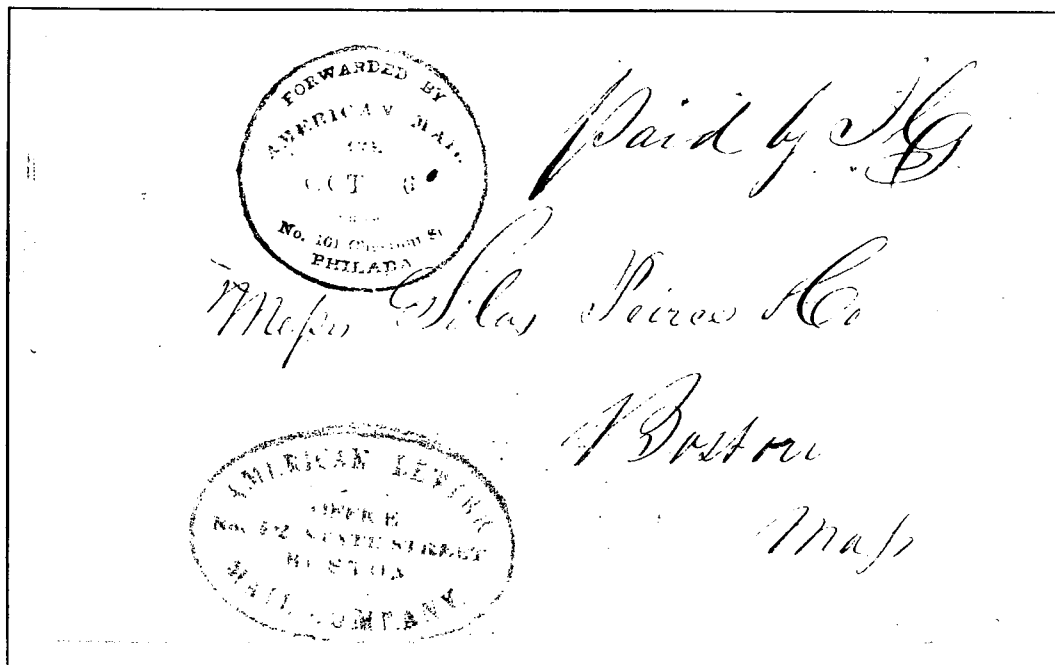 FORWARDED BY
AMERICAN MAIL
OCT 6
No. 101 Chesnut St
PHILADA
Paid by
Messrs Silas Peirce & Co
Boston
Mass
AMERICAN LETTER
OFFICE
No. 12 STATE STREET
BOSTON
MAIL COMPANY.